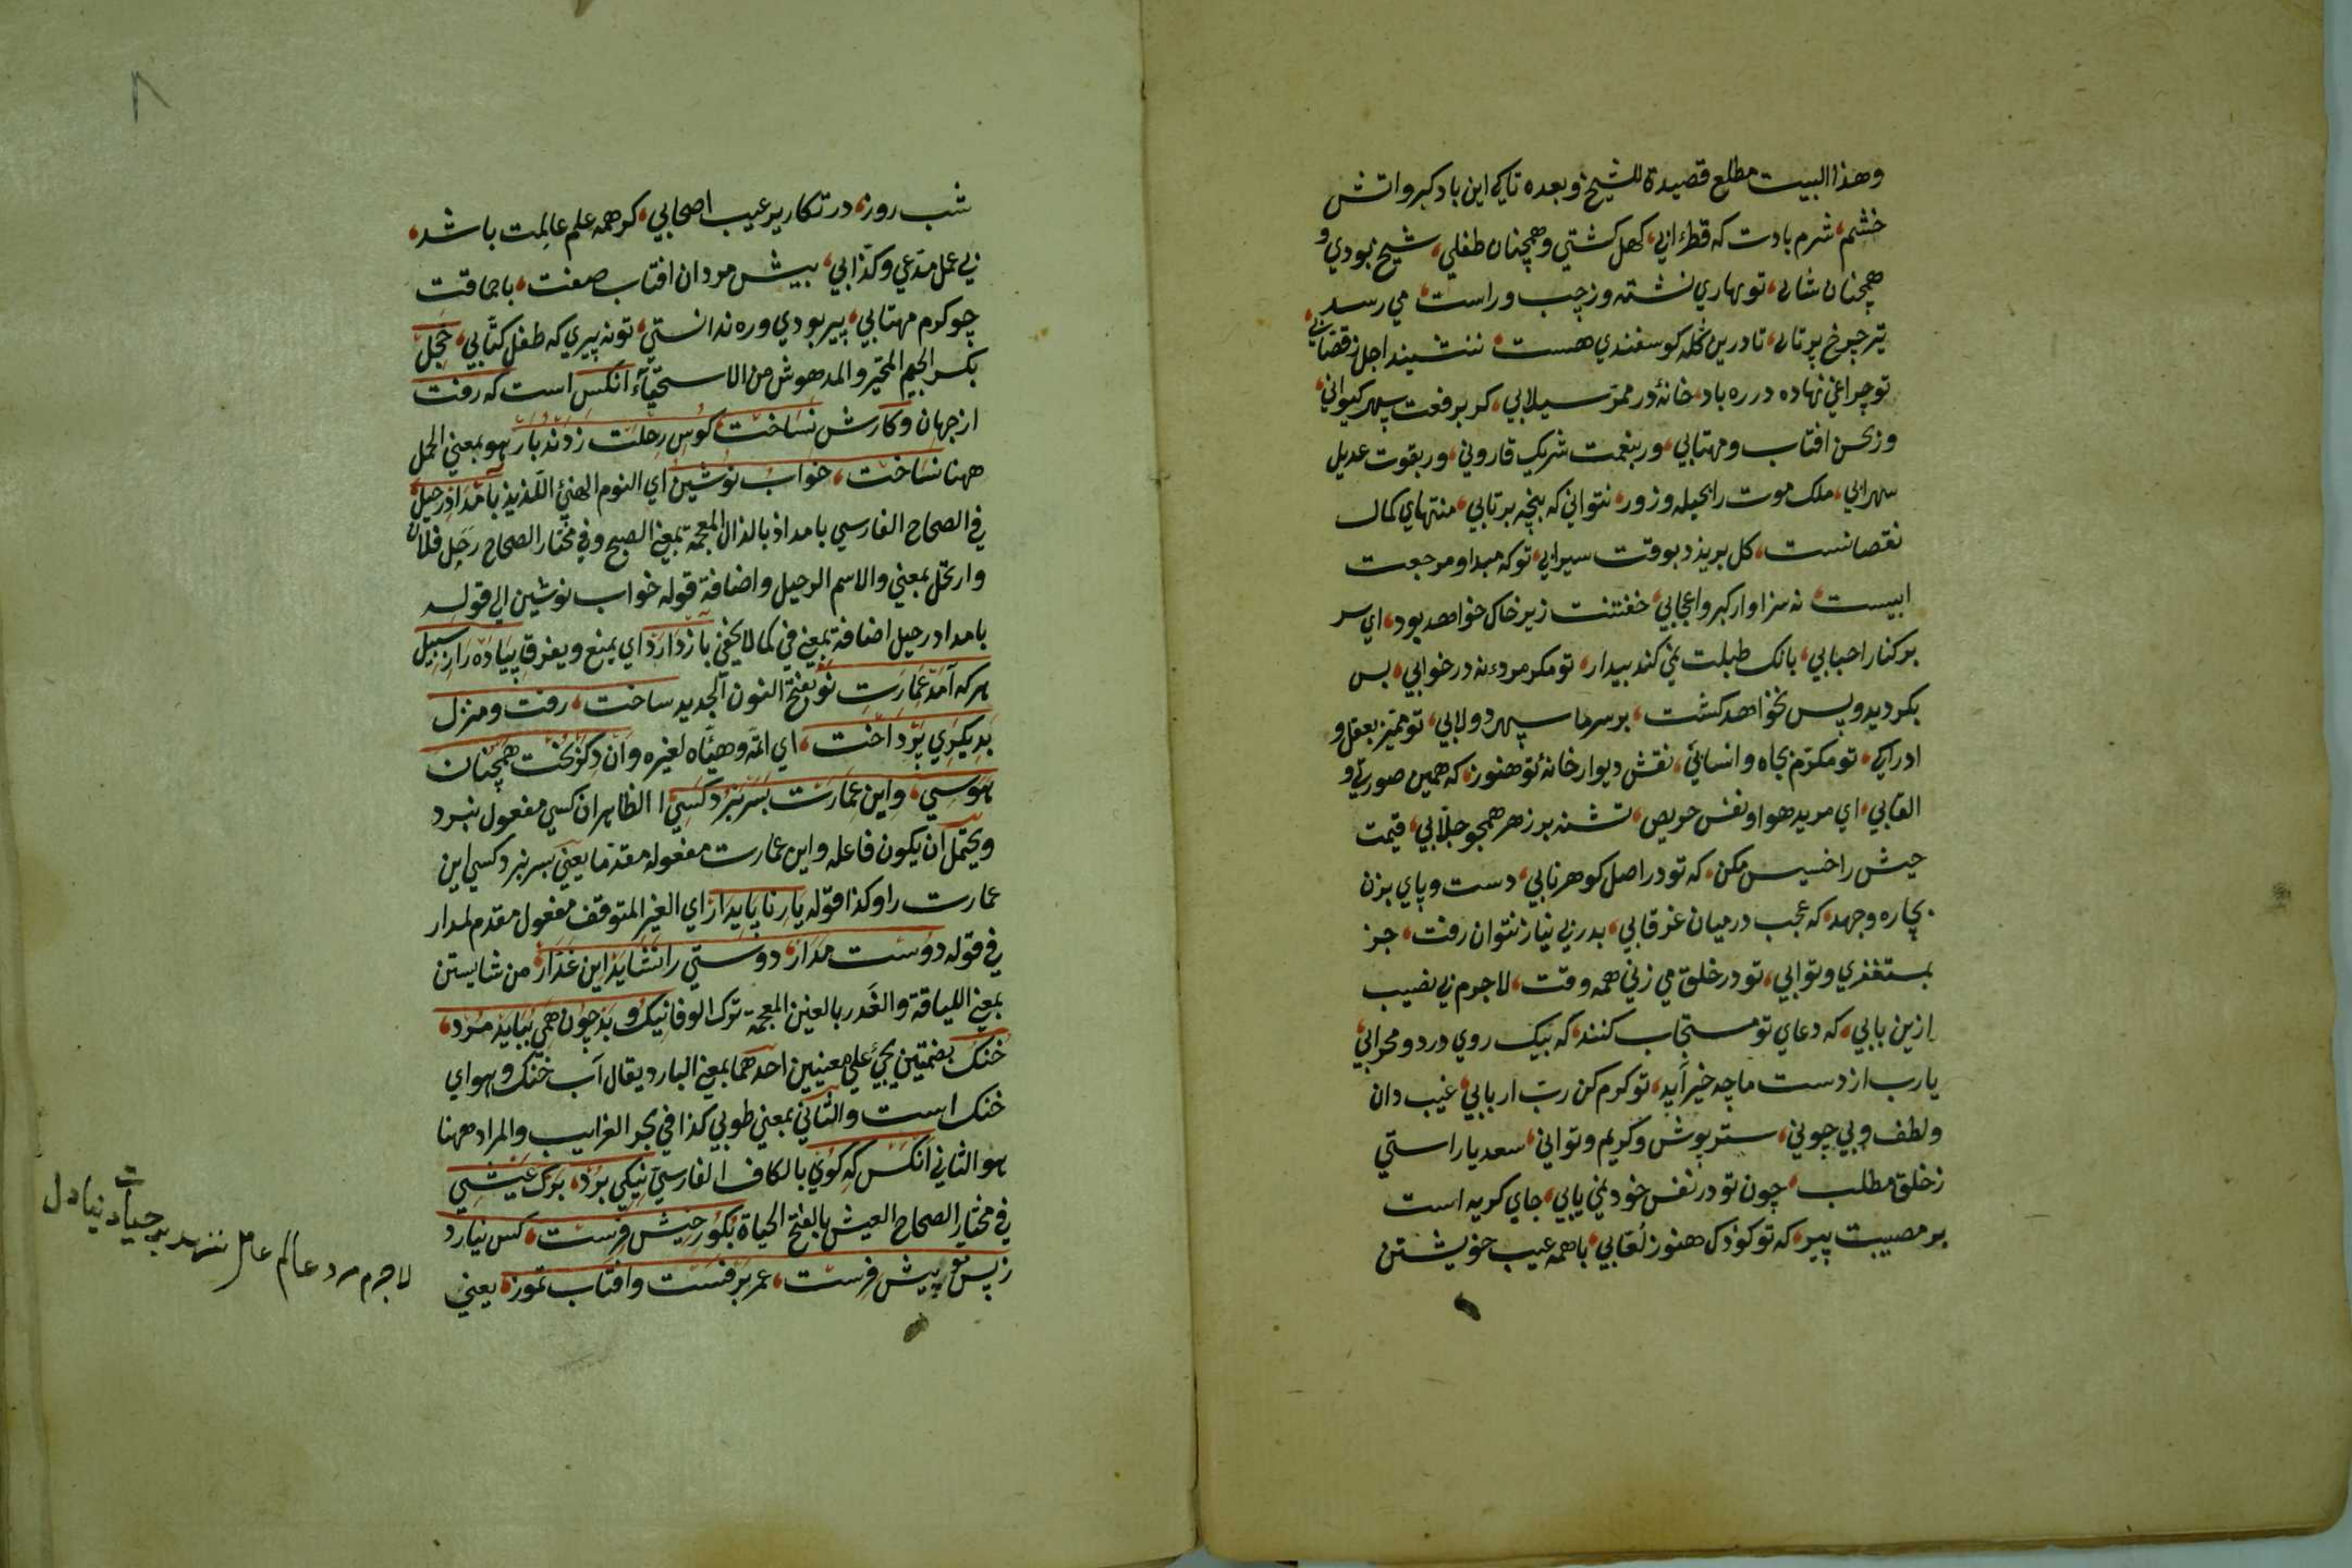 وهذا البيت مطلع قصيدة للشيخ وبعده تاكي اين باد كبر واتش
خشم، شرم بادت كه قطرۀ ابي، كهل كشتي وهمچنان طفلي، شيخ بودي و
همچنان شابي، تو ببازي نشته وز چپ وراست، مي رسد
تير چرخ پرتابي، تا درين گله كوسفندي هست، ننشيند اجل ز قصابي،
تو چراغي نهاده در ره باد، خانۀ در ممر سيلابي، كر برفعت سپهر كيواني،
وز بحسن افتاب ومهتابي، ور بنعمت شريك قاروني، ور بقوت عديل
سهرابي، ملك موت را بحيله وزور، نتواني كه پنجه برتابي، منتهاي كمال
نقصانست، كل بريزد بوقت سيرابي، تو كه مبدا ومرجعت
ابيست، نه سزاوار كبر واعجابي، خفتنت زير خاك خواهد بود، اي سر
بر كنار احبابي، بانك طبلت نمي كند بيدار، تو مكر مردۀ نه در خوابي، بس
بكرديد وپس نخواهد كشت، بر سر ما سپهر دولابي، تو مميز بعقل و
ادراكي، تو مكرم بجاه وانسابي، نقش ديوار خانۀ تو هنوز، كه همين صورتي و
القابي، اي مريد هوا ونفس حريص، تشنه بر زهر همچو جلابي، قيمت
خيش را خسيس مكن، كه تو در اصل كوهر نابي، دست وپاي بزن
بچاره وجهد، كه عجب در ميان غرقابي، بدر بي نياز نتوان رفت، جز
بمستغفري وتوابي، تو در خلق مي زني همه وقت، لاجرم بي نصيب
ازين بابي، كه دعاي تو مستجاب كنند، كه بيك روي در دو محرابي،
يا رب از دست ما چه خير آيد، تو كرم كن رب اربابي، غيب دان
ولطف وبي چوني، ستر پوش وكريم وتوابي، سعديا راستي
ز خلق مطلب، چون تو در نفس خود نمي يابي، جاي كريه است
بر مصيبت پير، كه تو كودك هنوز لعابي، با همه عيب خويشتن
شب روز، در تكاپر عيب اصحابي، كر همه علم عالمت باشد،
بي عمل مدعي وكذابي، بيش مردان افتاب صفت، با حماقت
چو كرم مهتابي، پير بودي وره ندانستي، تو نه پيري كه طفل كتابي، خجل
بكسر الجيم المتحير والمدهوش من الاستحياء انكس است كه رفت
از جهان وكارش نساخت، كوس رحلت زدند بار هو بمعني الحمل
ههنا نساخت، خواب نوشين اي النوم الهنيء اللذيذ بامداد رحيل
في الصحاح الفارسي بامداذ بالذال المعجمة بمعني الصبح وفي مختار الصحاح رحل فلان
وارتحل بمعني والاسم الرحيل واضافة قوله خواب نوشين الي قوله
بامداد رحيل اضافة بمعني في كما لا يخفي باز دارد اي يمنع ويفرق پياده را ز سبيل
هر كه آمد عمارت نو بفتح النون الجديد ساخت، رفت ومنزل
بديكري پرداخت، اي اتمه وهيأه لغيره وان دكر پخت همچنان
هوسي، واين عمارت بسر نبرد كسي الظاهر ان كسي مفعول نبرد
ويحتمل ان يكون فاعله واين عمارت مفعوله مقدما يعني بسر نبرد كسي اين
عمارت را وكذا قوله يار ناپايدار اي الغير المتوقف مفعول مقدم لمدار
في قوله دوست مدار، دوستي را نشايد اين غدار، من شايستن
بمعني اللياقة والغدر بالغين المعجمة ترك الوفا نيك وبد چون همي ببايد مرد،
خنك بضمتين يجيء علي معنيين احدهما بمعني البارد يقال آب خنك وهواي
خنك است والثاني بمعني طوبي كذا في بحر الغرايب والمراد ههنا
هو الثاني انكس كه كوي بالكاف الفارسي نيكي برد، برك عيشي
في مختار الصحاح العيش بالفتح الحياة بكور خيش فرست، كس نيارد
ز پس تو پيش فرست، عمر برفست وافتاب تموز، يعني
لاجرم مرد عالم عامل ننهد بر حيات دنيا دل
٨